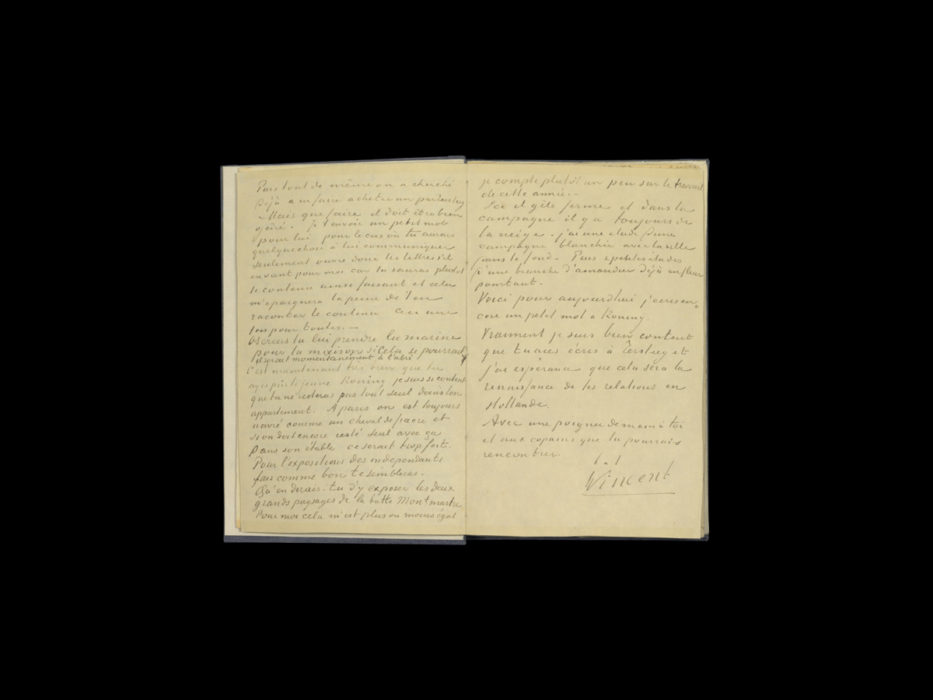 Puis tout de même on a cherché
déjà à en faire acheter un par
Mais que faire il doit être bien
je t'envoie un petit mot
pour lui pour le cas où tu aurais
quelque chose à lui communiquer
seulement ouvre donc les lettres s'il
en vient pour moi car tu sauras plus tôt
le contenu ainsi faisant et cela
m'épargnera la peine de t'en
raconter le contenu Ceci une
fois pour toutes. —
Oserais tu lui prendre la marine
pour la maison. Si cela se pourrait
il serait momentanément à l'abri
C'est maintenant très heureux que tu
ayes pris le jeune Koning je suis si content
que tu ne resteras pas tout seul dans ton
appartement. A Paris on est toujours
navré comme un cheval de fiacre et
si on doit encore resté seul avec ça
dans son étable ce serait trop fort.
Pour l'exposition des indépendants
fais comme bon te semblera.
Qu'en dirais-tu d'y exposer les deux
grands paysages de la butte Montmartre
Pour moi cela m'est plus ou moins égal
je compte plutôt un peu sur le travail
de cette année.-
Ici il gèle ferme et dans la
campagne il y a toujours de
la neige - j'ai une étude d'une
campagne blanchie avec la ville
dans le fond. Puis 2 petites études
d'une branche d'amandier déjà en fleur
pourtant.
Voici pour aujourd'hui j'écris en-
core un petit mot à Koning.
Vraiment je suis bien content
que tu aies écris à Tersteeg et
j'ai espérance que cela sera la
renaissance de tes relations en
Hollande.
Avec une poignée de main à toi
et aux copains que tu pourrais
rencontrer
t. à t.
Vincent